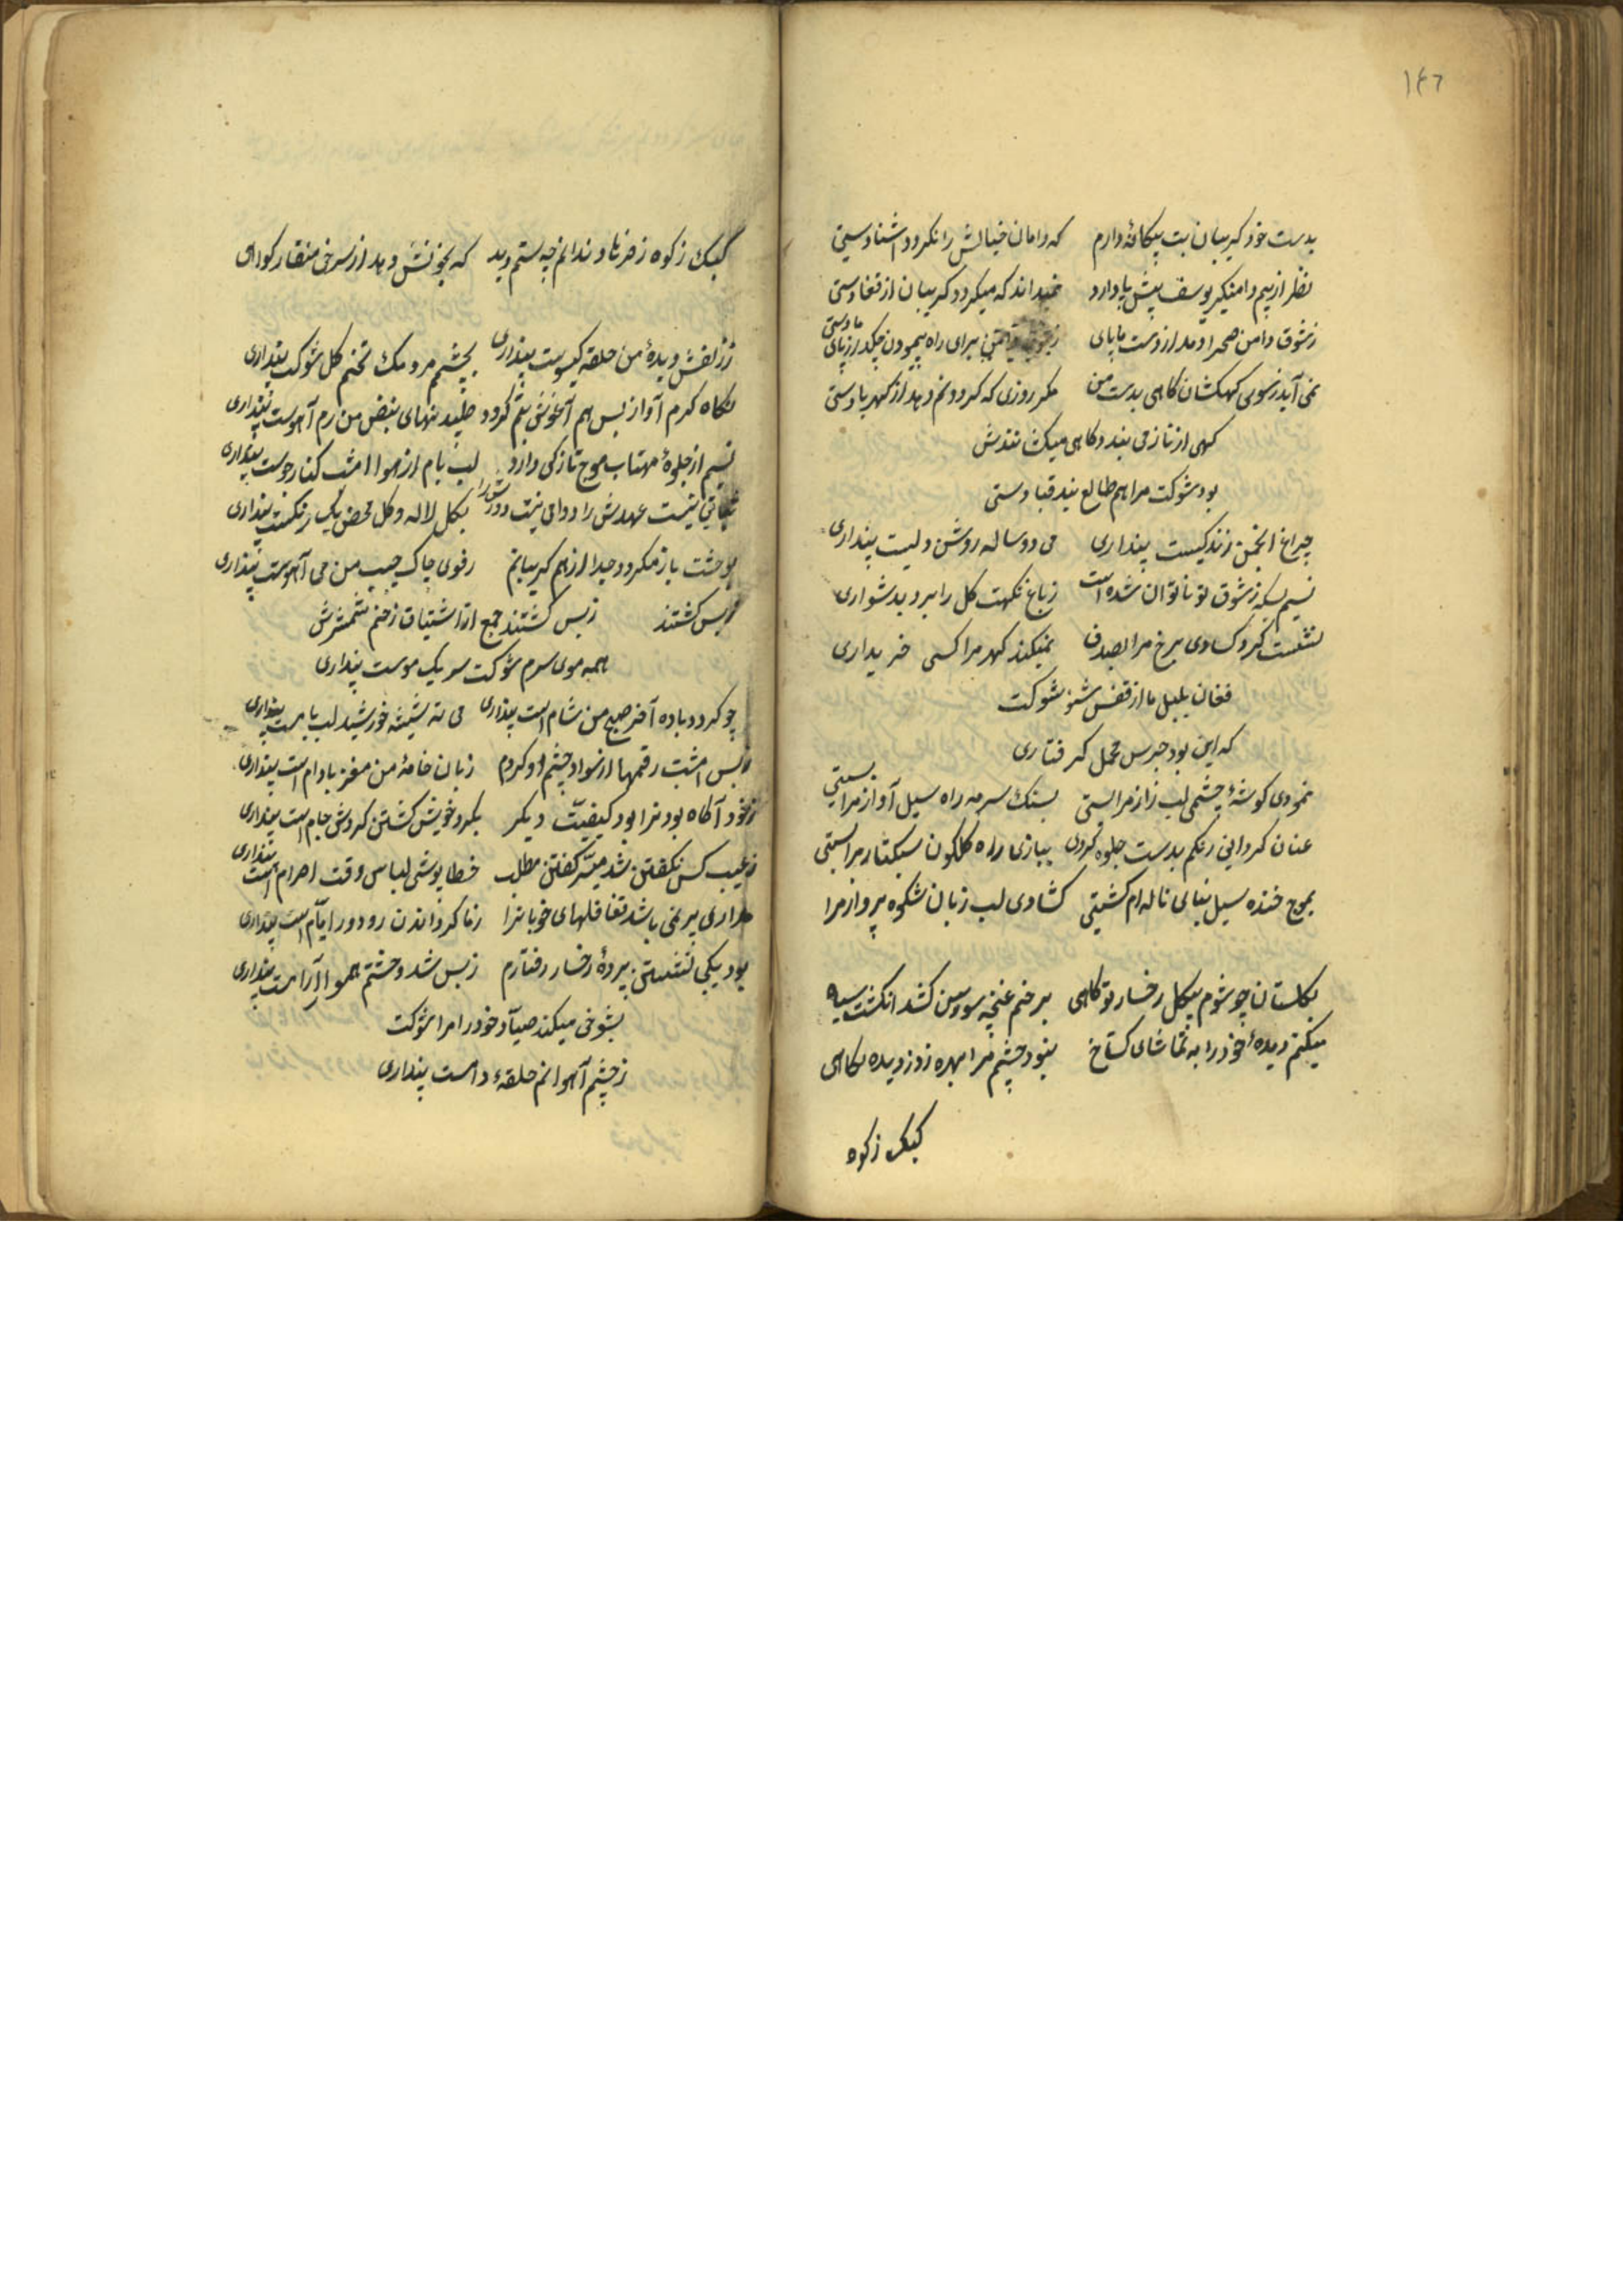 ۱۴۶
بدست خود کریبان بت بیکانهٔ دارم که دامان خیالش را نکردد آشنا دستی
نظر از بیم دامنکیر یوسف پیش پا دارد نمیداند که میکردد کریبان از قفا دستی
ز شوق دامن صحرا دمد از دست ما پای برای راه پیمودن چکد از پای ما دستی
نمی آید ز سوی کهکشان کاهی بدست من مکر روزی که کردونم دهد از کهربا دستی
کهی از ناز می بندد کاهی میکشاندش
بود شوکت مرا هم طالع بند قبا دستی
چراغ انجمن زندکیست پنداری می دو ساله روشن دلیست پنداری
نسیم بسکه ز شوق تو ناتوان شده است ز باغ نکهت کل را برد بدشواری
نشست کرد کسادی برخ مرا بصدف نمیکند کهر مرا کسی خریداری
فغان بلبل ما از قفس شنو شوکت
که این بود جرس محمل کرفتاری
نمودی کوشهٔ چشمی لب راز مرا بستی بسنک سرمه راه سیل آواز مرا بستی
عنان کردانی رنکم بدست جلوه کردی ببازی راه کلکون سبکتاز مرا بستی
بموج خنده سیل بنای ناله ام کشتی کشادی لب زبان شکوه پرداز مرا
بکلستان چو شوم بیکل رخسار تو کاهی بر خم غنچه سوسن کشد انکشت سیاه
میکنم دیدهٔ خود را به تماشای کستاخ نبود چشم مرا بهره ز دزدیده نکاهی
کبک ز کوه
کبک ز کوه ز فرهاد ندانم چه ستم دید که بخونش دهد از سرخی منقار کواهی
ز زلفش دیدهٔ من حلقه کیسوست پنداری بچشمم مردمک تخم کل شوکت پنداری
نکاه کرم آواز بس هم آغوش بتم کردد طپیدنهای نبض من رم آهوست پنداری
نسیم از جلوهٔ مهتاب موج تازکی دارد لب بام از هوا امشب کنار جوست پنداری
ثباتی نیست عهدش را دوامی نیست دورش را بکل لاله و کل محض یک رنکست پنداری
بوحشت باز میکردد جدا از هم کریبانم رفوی چاک جیب من می آهوست پنداری
ز بس کشتند ز بس کشتند جمع از اشتیاق زخم شمشیرش
همه موی سرم شوکت سر یک موست پنداری
چو کردد باده آخر صبح من شام است پنداری می ته شیشه خورشید لب بامست پنداری
ز بس امشب رقمها از سواد چشم او کردم زبان خامهٔ من مغز بادام است پنداری
ز خود آکاه بودنرا بود کیفیت دیکر بکرد خویش کشتن کردش جام است پنداری
ز عیب کس نکفتن شد میسر کفتن مطلب خطا پوشی لباس وقت احرام است پنداری
مداری بر نمی باشد تغافلهای خوبانرا ز ما کرداندن رو دور ایام است پنداری
بود یکجا نشستن پردهٔ رخسار رفتارم ز بس شد وحشتم هموار آرامست پنداری
بشوخی میکند صیاد خود را مرا شوکت
ز چشم آهوانم حلقهٔ دامست پنداری